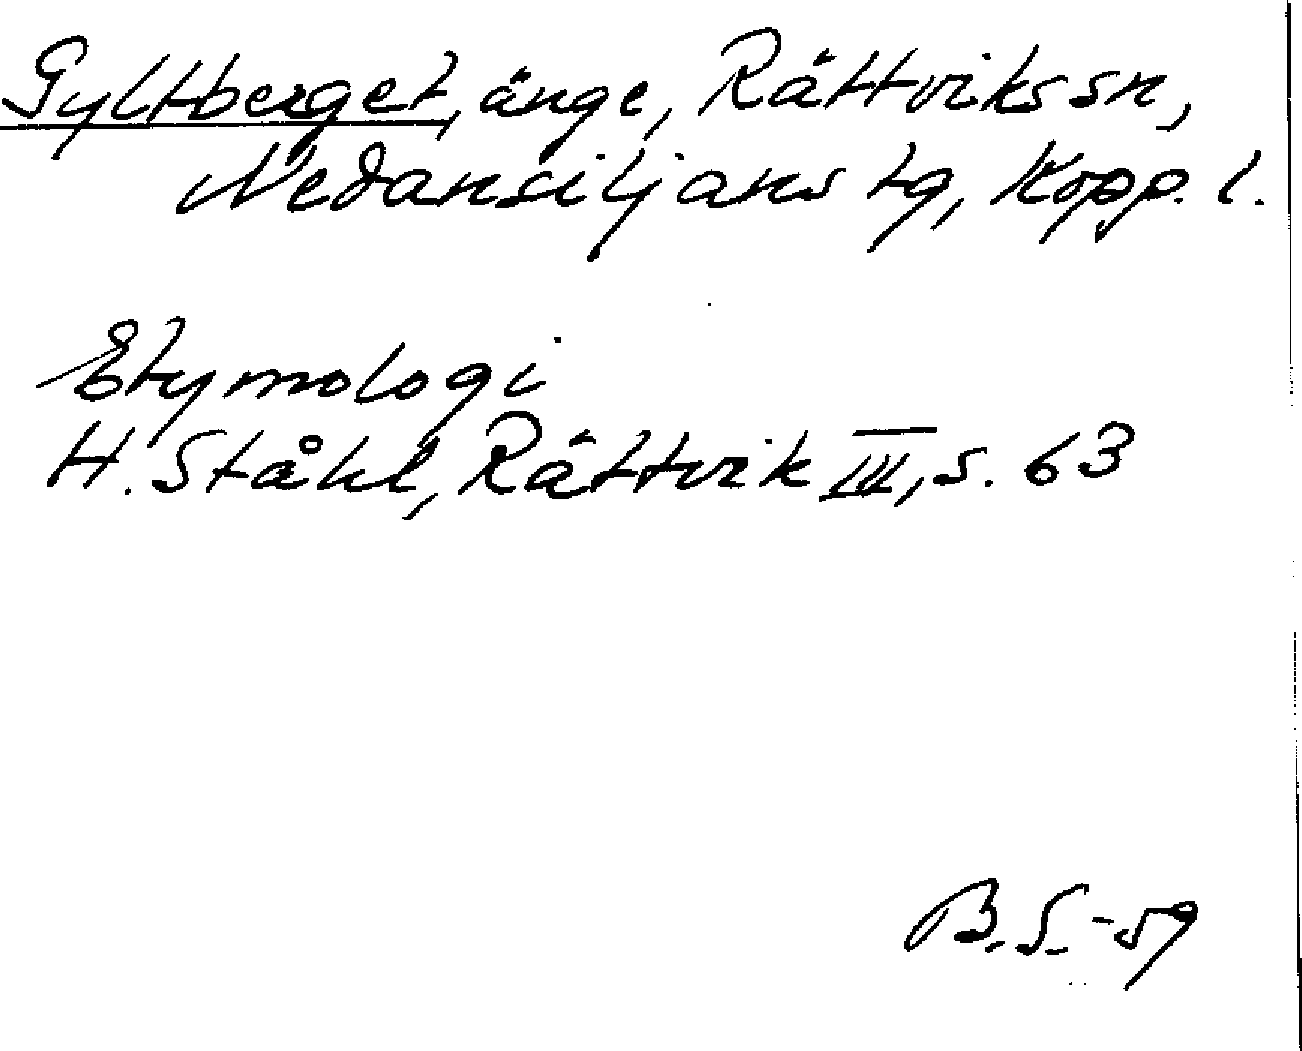 Gyltberget, änge, Rättviks sn,
Nedansiljans tg, Kopp. l.
Etymologi
H. Ståhl, Rättvik III, s. 63
B. S. -59